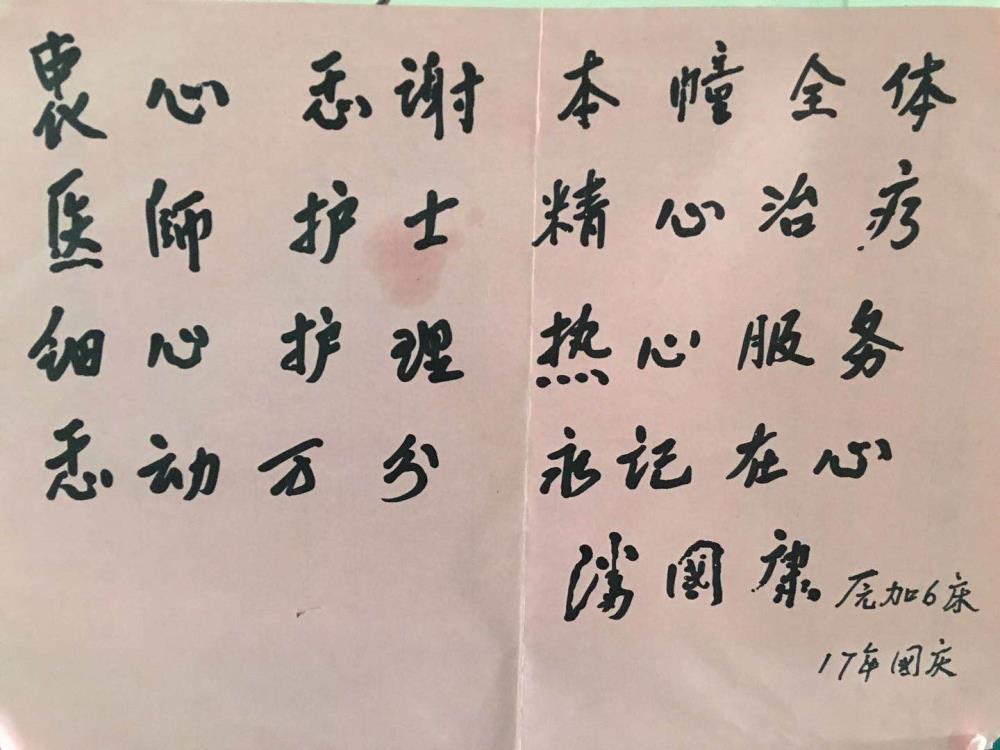 衷心忎谢 本幢全体
医师护士 精心治疗
细心护理 热心服务
忎动万分 永记在心
国康 加6床
17年国庆